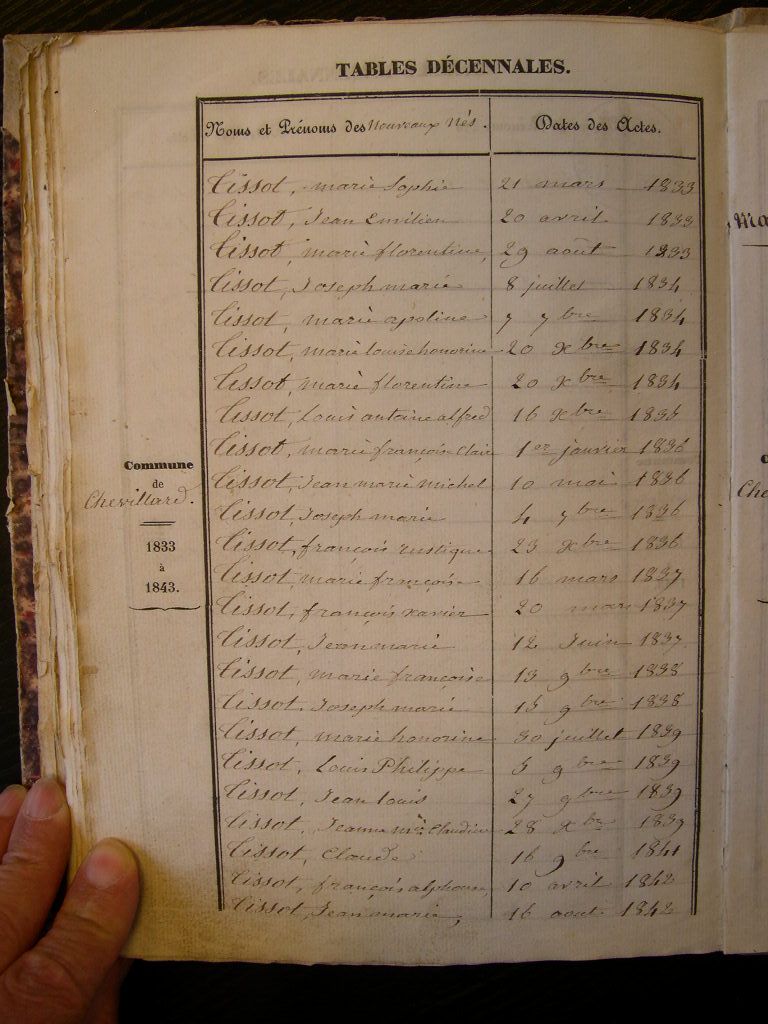 TABLES DÉCENNALES.
Noms et Prénoms des Nouveaux Nés. Dates des Actes.
Tissot, marie Sophie 21 mars 1833
Tissot, Jean Emilien 20 avril 1833
Tissot, marie florentine, 29 août 1833
Tissot, Joseph marie 8 juillet 1834
Tissot, marie apoline 7 7bre 1834
Tissot, marie louise honorine 20 Xbre 1834
Tissot, marie florentine 20 Xbre 1834
Tissot, Louis antoine alfred 16 Xbre 1835
Tissot, marie françois Clair 1er janvier 1836
Tissot, Jean marie michel 10 mai 1836
Tissot, Joseph marie 4 7bre 1836
Tissot, françois rustique 23 Xbre 1836
Tissot, marie françoise 16 mars 1837
Tissot, françois xavier 20 mars 1837
Tissot, Jean marie 12 Juin 1837
Tissot, marie françoise 13 9bre 1838
Tissot. Joseph marie 15 9bre 1838
Tissot, marie honorine 30 juillet 1839
Tissot, Louis Philippe 5 9bre 1839
Tissot, Jean louis 27 9bre 1839
Tissot, Jeanne mie Claudine 28 Xbre 1839
Tissot, Claude 16 9bre 1841
Tissot, françois alphonse, 10 avril 1842
Tissot, Jean marie, 16 aout 1842
Commune
de
Chevillard.
1833
à
1843.